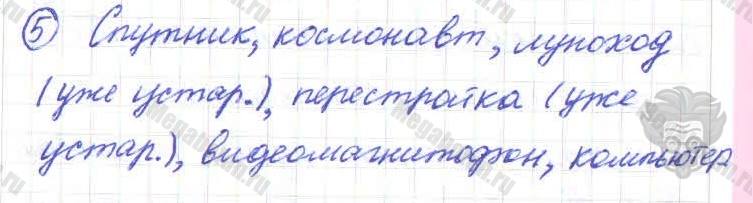 ⑤ Спутник, космонавт, луноход
(уже устар.), перестройка (уже
устар.), видеомагнитофон, компьютер